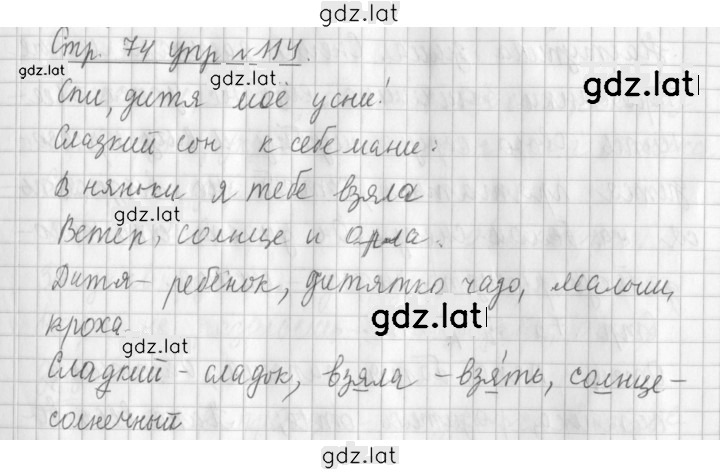 gdz.lat
Стр. 74 упр №114.
gdz.lat
gdz.lat
gdz.lat
Спи, дитя моё усни!
Сладкий сон к себе мани:
В няньки я тебе взяла
gdz.lat
Ветер, солнце и орла.
Дитя – ребёнок, дитятко чадо, малыш,
gdz.lat
кроха.
gdz.lat
Сладкий – сладок, взяла – взять, солнце –
солнечный
gdz.lat